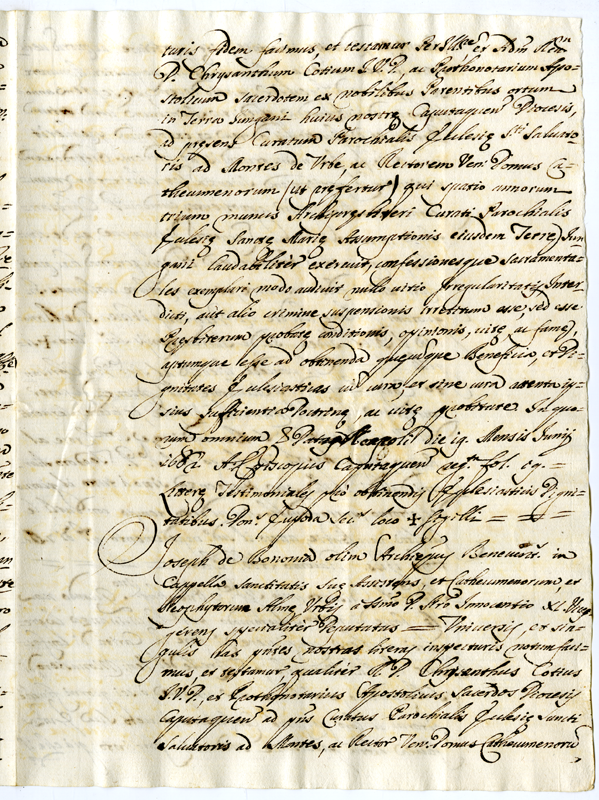 turis fidem facimus, et testamur Per Ill.e et Adm Rev.
P. Chrysanthum Cotium I.V.D., ac Prothonotarium Apo-
stolicum Sacerdotem ex nobilibus Parentibus ortum
in Terra Iungani huius nostrę Caputaquen Dioecesis,
ad pręsens Curatum Parochialis Ecclesię S.ti Salvato-
ris ad Montes de Urbe, ac Rectorem Ven. Domus Ca-
theumenorum (ut pręfertur) qui spatio annorum
trium munus Archipręsbiteri Curati Parochialis
Ecclesię Sanctę Marię Assumptionis eiusdem Terrę Iun
gani laudabiliter exercuit, confessionesque Sacramenta-
les exemplari modo audivit nullo vitio Irregularitatis, Inter
dicti, aut alio crimine suspensionis irretitum esse, sed esse
Pręsbiterum probatę conditionis, opinionis, vitę, ac famę,
aptumque esse ad obtinenda quęcumque Beneficia, et Di-
gnitates Ecclesiasticas cum cura, et sine cura attenta ip-
sius sufficientia Doctrina, ac vitę probitate. In quo-
rum omnium Neapoli die 19. Mensis Iunij
1682 A. Episcopus Caputaquen reg. fol. 69. =
Literę Testimoniales pro obtinendis Ecclesiasticis Digni-
tatibus. loco + sigilli =
Ioseph de Bononia olim Archiepus Beneven. in
Cappella Sanctitatis Suę Assistens, et Catheumenorum, et
Neophytorum Almę Urbis a Smo D. Nro Innocentio XI.
gerens specialiter Deputatus = Universis, et sin-
gulis has pntes nostras literas inspecturis notum faci-
mus, et testamur, qualiter R. D. Chrysanthus Cotius
I.V.D., et Prothonotarius Apostolicus, Sacerdos Diocesis
Caputaquen ad pns Curatus Parochialis Ecclesię Sancti
Salvatoris ad Montes, ac Rector Ven. Domus Catheumenorū